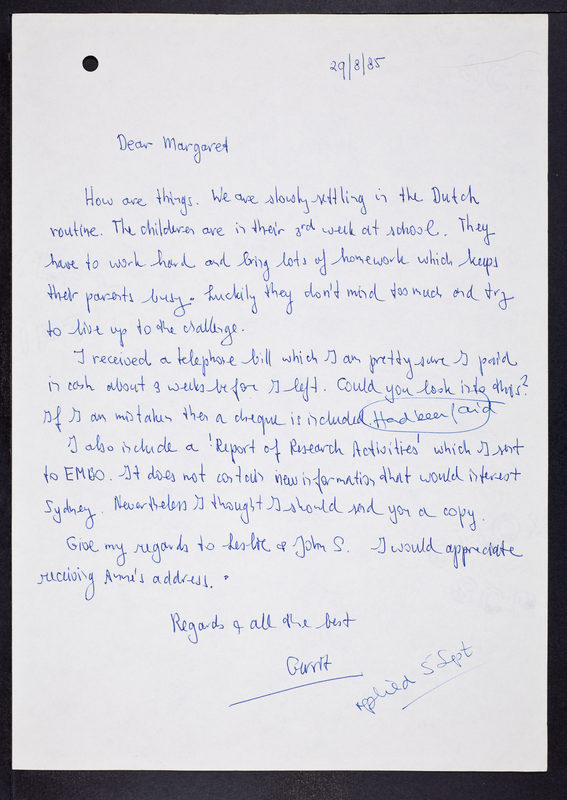 29/8/85
Dear Margaret
How are things. We are slowly settling in the Dutch
routine. The childeren are in their 3rd week at school. They
have to work hard and bring lots of homework which keeps
their parents busy. Luckily they don't mind too much and try
to live up to the challenge.
I received a telephone bill which I am pretty sure I paid
in cash about 3 weeks before I left. Could you look into this?
If I am mistaken then a cheque is included Had been paid
I also include a 'Report of Research Activities' which I sent
to EMBO. It does not contain new information that would interest
Sydney. Nevertheless I thought I should send you a copy.
Give my regards to Leslie & John S. I would appreciate
receiving Anne's address.
Regards & all the best
Gerrit
replied 5 Sept